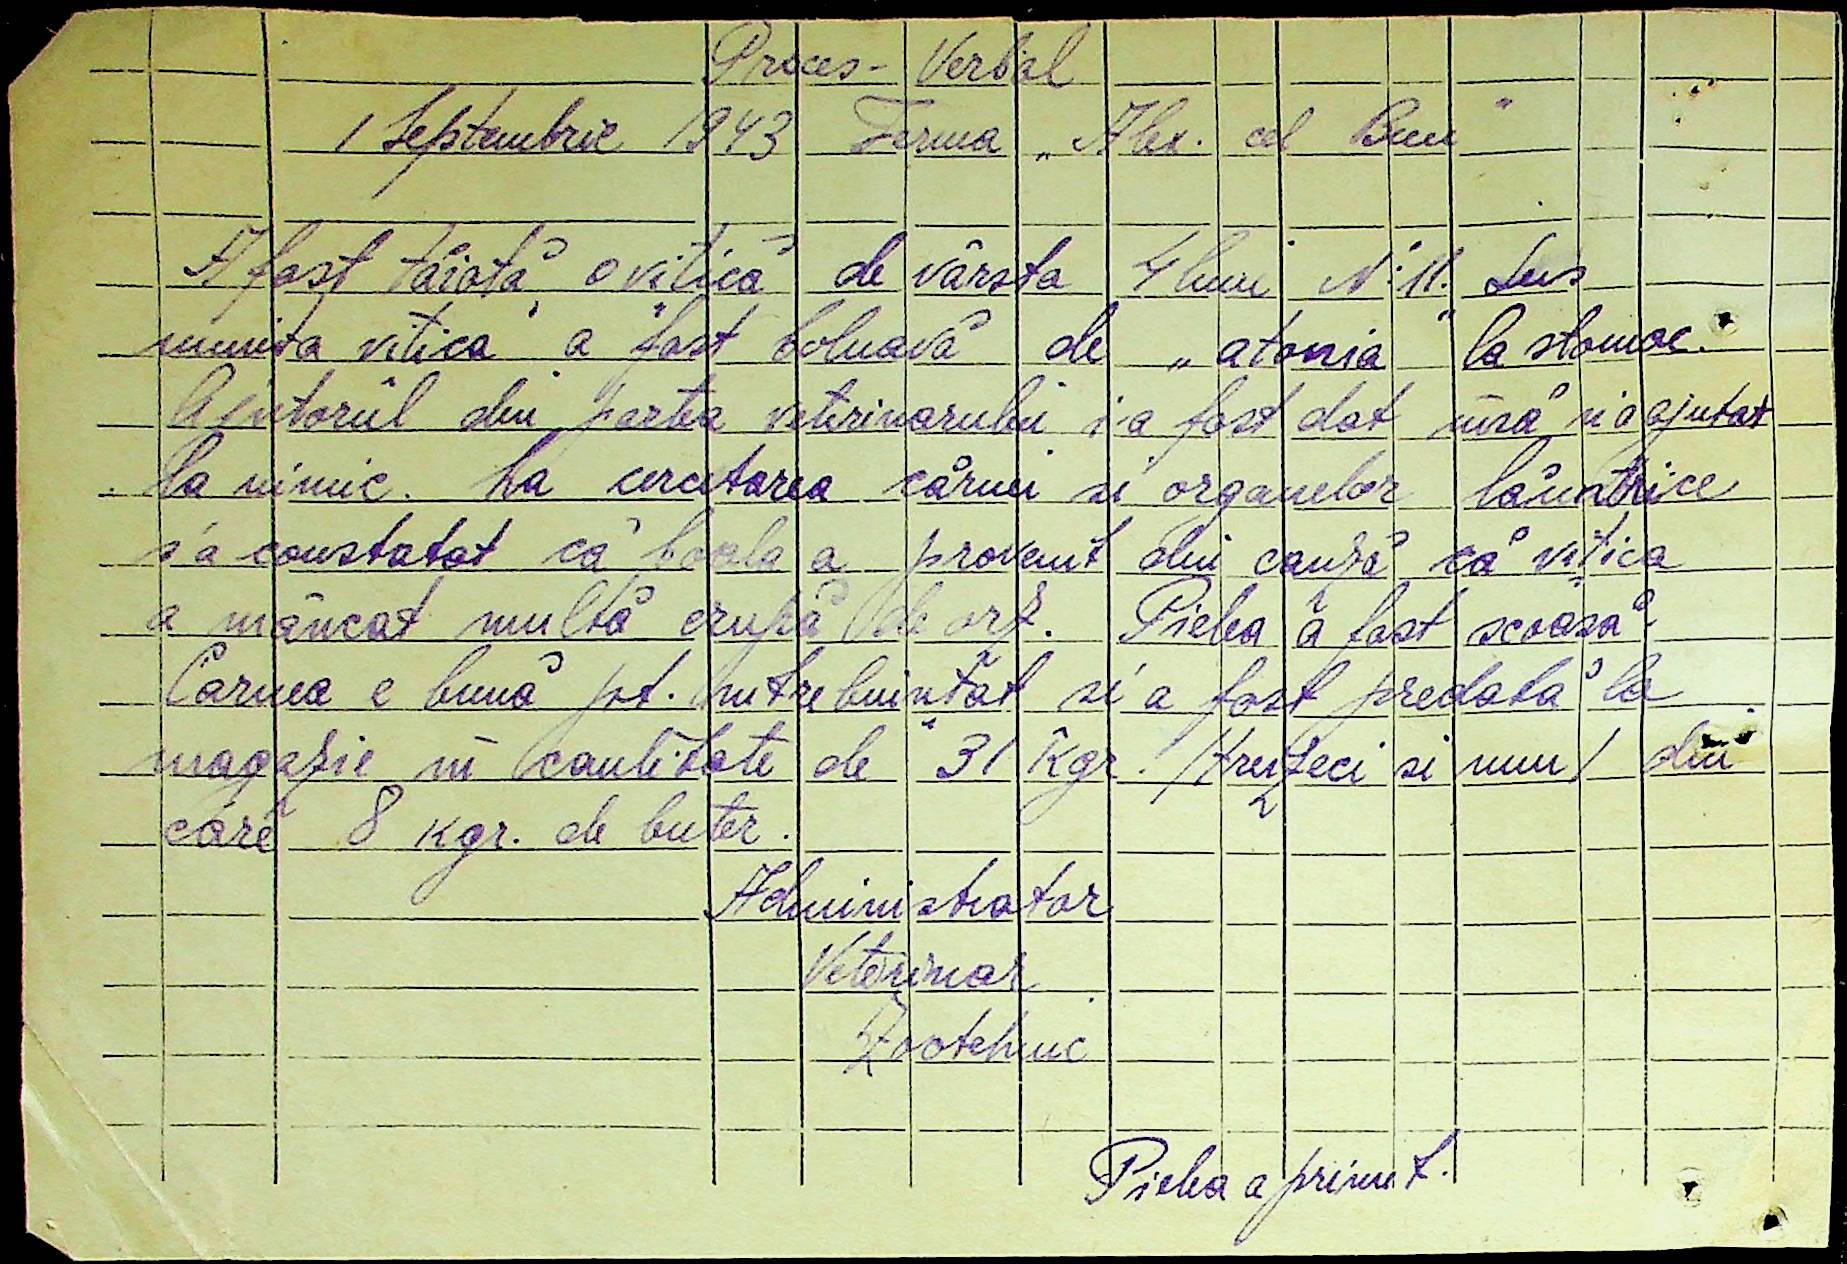 Proces - Verbal
1 Septembrie 1943 Ferma „Alex. cel Bun"
A fost tăiată o vitică de vârsta 4 luni N: 11. Sus
numita vitica a fost bolnavă de „atonia" la stomac.
Ajutorul din partea veterinarului i'a fost dat însă n'a ajutat
la nimic. La cercetarea cărnei si organelor lăuntrice
s'a constatat că boala a provenit din cauză că vitica
a mâncat multă crupă de orz. Pielea a fost scoasă.
Carnea e bună pt. întrebuințat si a fost predată la
magazie în cantitate de 31 Kgr. /treizeci si unu/ din
care 8 kgr. de buter.
Administrator
Veterinar
Zootehnic
Pielea a primit.